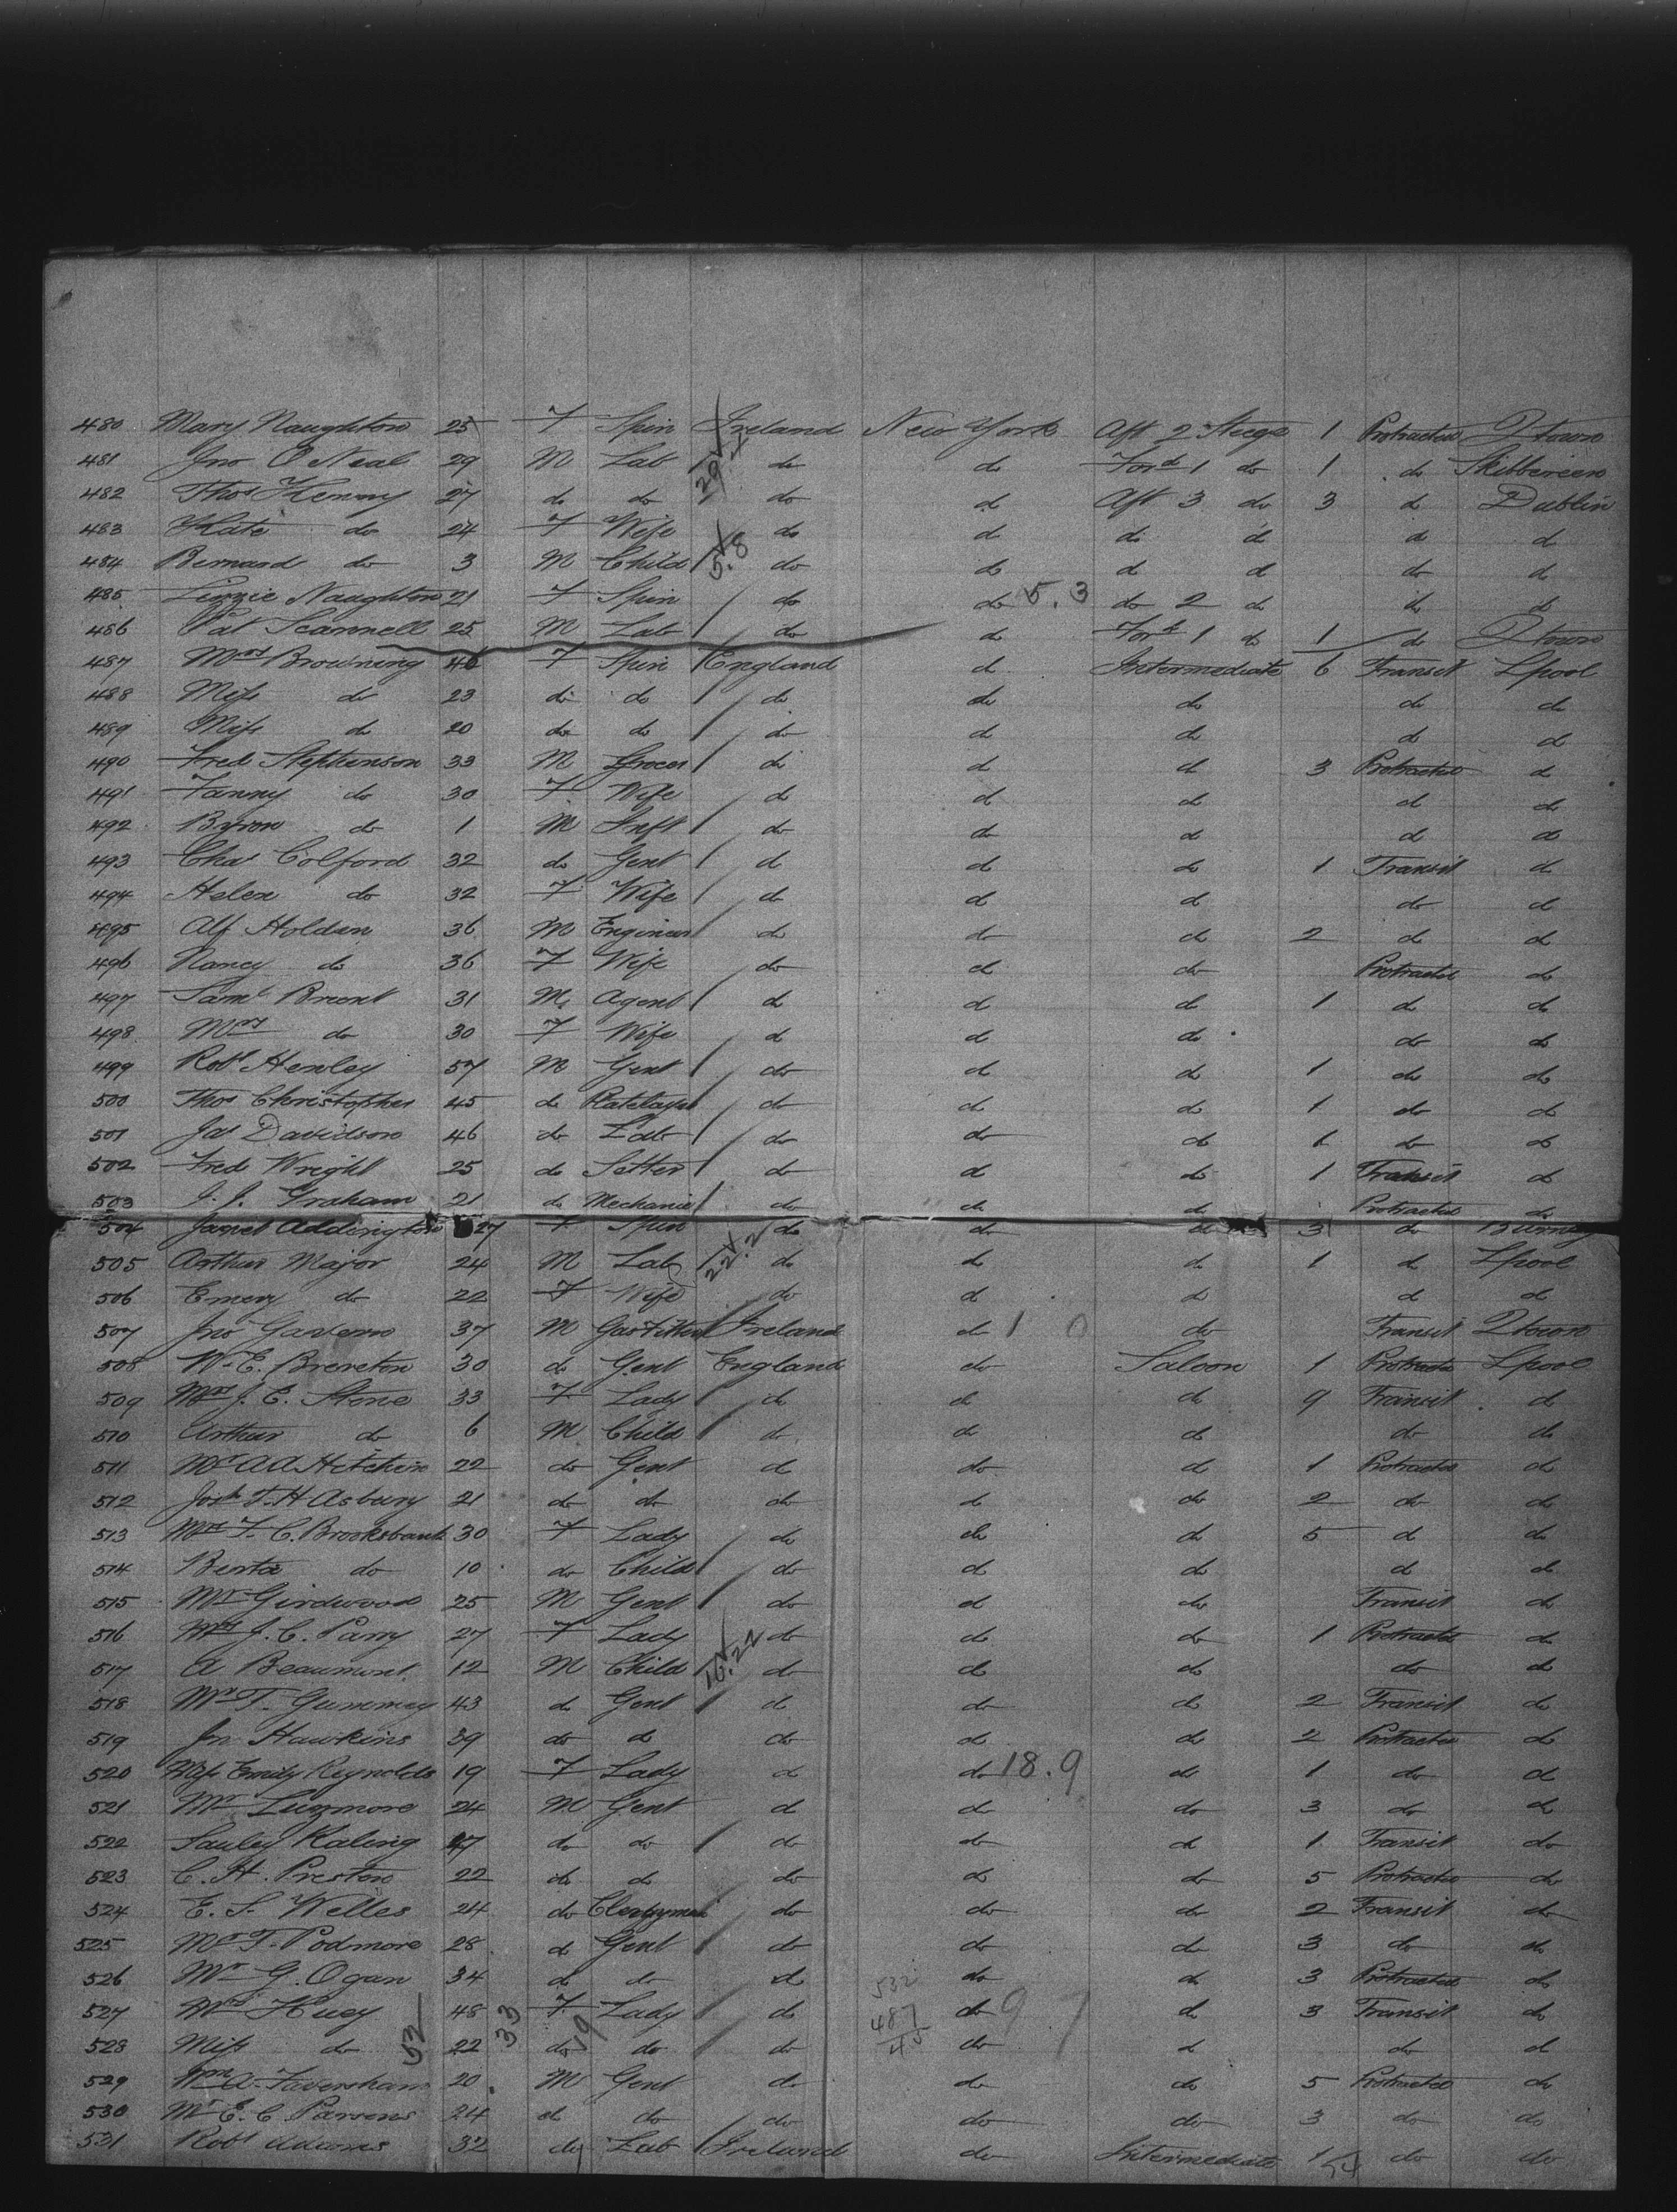 480 Mary Naughton 25 F Spin Ireland New York Aft 2 Steege 1 Protracted Qtown
481 Jno O Neal 29 M Lab do do Ford 1 do 1 do Skibbereen
482 Thos Kenny 27 do do do do Aft 3 do 3 do Dublin
483 Kate do 24 F Wife do do do do do do
484 Bernard do 3 M Child do do do do do do
485 Lizzie Naughton 21 F Spin do do 5.3 do 2 do do do
486 Pat Scannell 25 M Lab do do Ford 1 do 1 do Qtown
487 Mrs Browning 46 F Spin England do Intermediate 6 Transit Lpool
488 Miss do 23 do do do do do do do
489 Miss do 20 do do do do do do do
490 Fred Stephenson 33 M Grocer do do do 3 Protracted do
491 Fanny do 30 F Wife do do do do do
492 Byron do 1 M Inft do do do do do
493 Chas Colford 32 do Gent do do do 1 Transit do
494 Helen do 32 F Wife do do do do do
495 Alf Holden 36 M Engineer do do do 2 do do
496 Nancy do 36 F Wife do do do Protracted do
497 Saml Brient 31 M Agent do do do 1 do do
498 Mrs do 30 F Wife do do do do do
499 Robt Henley 57 M Gent do do do 1 do do
500 Thos Christopher 45 do Platelayer do do do 1 do do
501 Jas Davidson 46 do Lab do do do 1 do do
502 Fred Wright 25 do Setter do do do 1 Transit do
503 J. J. Graham 21 do Mechanic do do do Protracted do
504 Janet Addington 27 F Spin 22.2 do do do 3 do
505 Arthur Major 24 M Lab do do do 1 do Lpool
506 Emery do 22 F Wife do do do do do
507 Jno Gavern 37 M Gasfitter Ireland do 1 0 do Transit Qtown
508 W. E. Brereton 30 do Gent England do Saloon 1 Protracted Lpool
509 Mrs J. E. Stene 33 F Lady do do do 9 Transit do
510 Arthur do 6 M Child do do do do do
511 Mr A A Hitchin 22 do Gent do do do 1 Protracted do
512 Josh T. H Asbury 21 do do do do do 2 do do
513 Mrs F. C. Brooksbank 30 F Lady do do do 5 do do
514 Berta do 10 do Child do do do do do
515 Mr Girdwood 25 M Gent do do do Transit do
516 Mrs J. C. Parry 27 F Lady do do do 1 Protracted do
517 A Beaumont 12 M Child 16.22 do do do do do
518 Mr T. Gummey 43 do Gent do do do 2 Transit do
519 Jn Hawkins 39 do do do do do 2 Protracted do
520 Miss Emily Reynolds 19 F Lady do do 18.9 do 1 do do
521 Mr Luzmore 24 M Gent do do do 3 do do
522 Sauley Kaling 27 do do do do do 1 Transit do
523 C. H. Preston 22 do do do do do 5 Protracted do
524 E. S. Welles 24 do Clergyman do do do 2 Transit do
525 Mr T. Podmore 28 do Gent do do do 3 do do
526 Mr G. Ogan 34 do do do 532 do do 3 Protracted do
527 Mrs Huey 48 33 F Lady do 487 do 9 7 do 3 Transit do
528 Miss do 52 22 do 19 do do 45 do do do do
529 Wm A. Faversham 20 M Gent do do do 5 Protracted do
530 Mr E. C Parsons 24 do do do do do 3 do do
531 Robt Adams 32 do Lab Ireland do Intermediate 1 54 do do